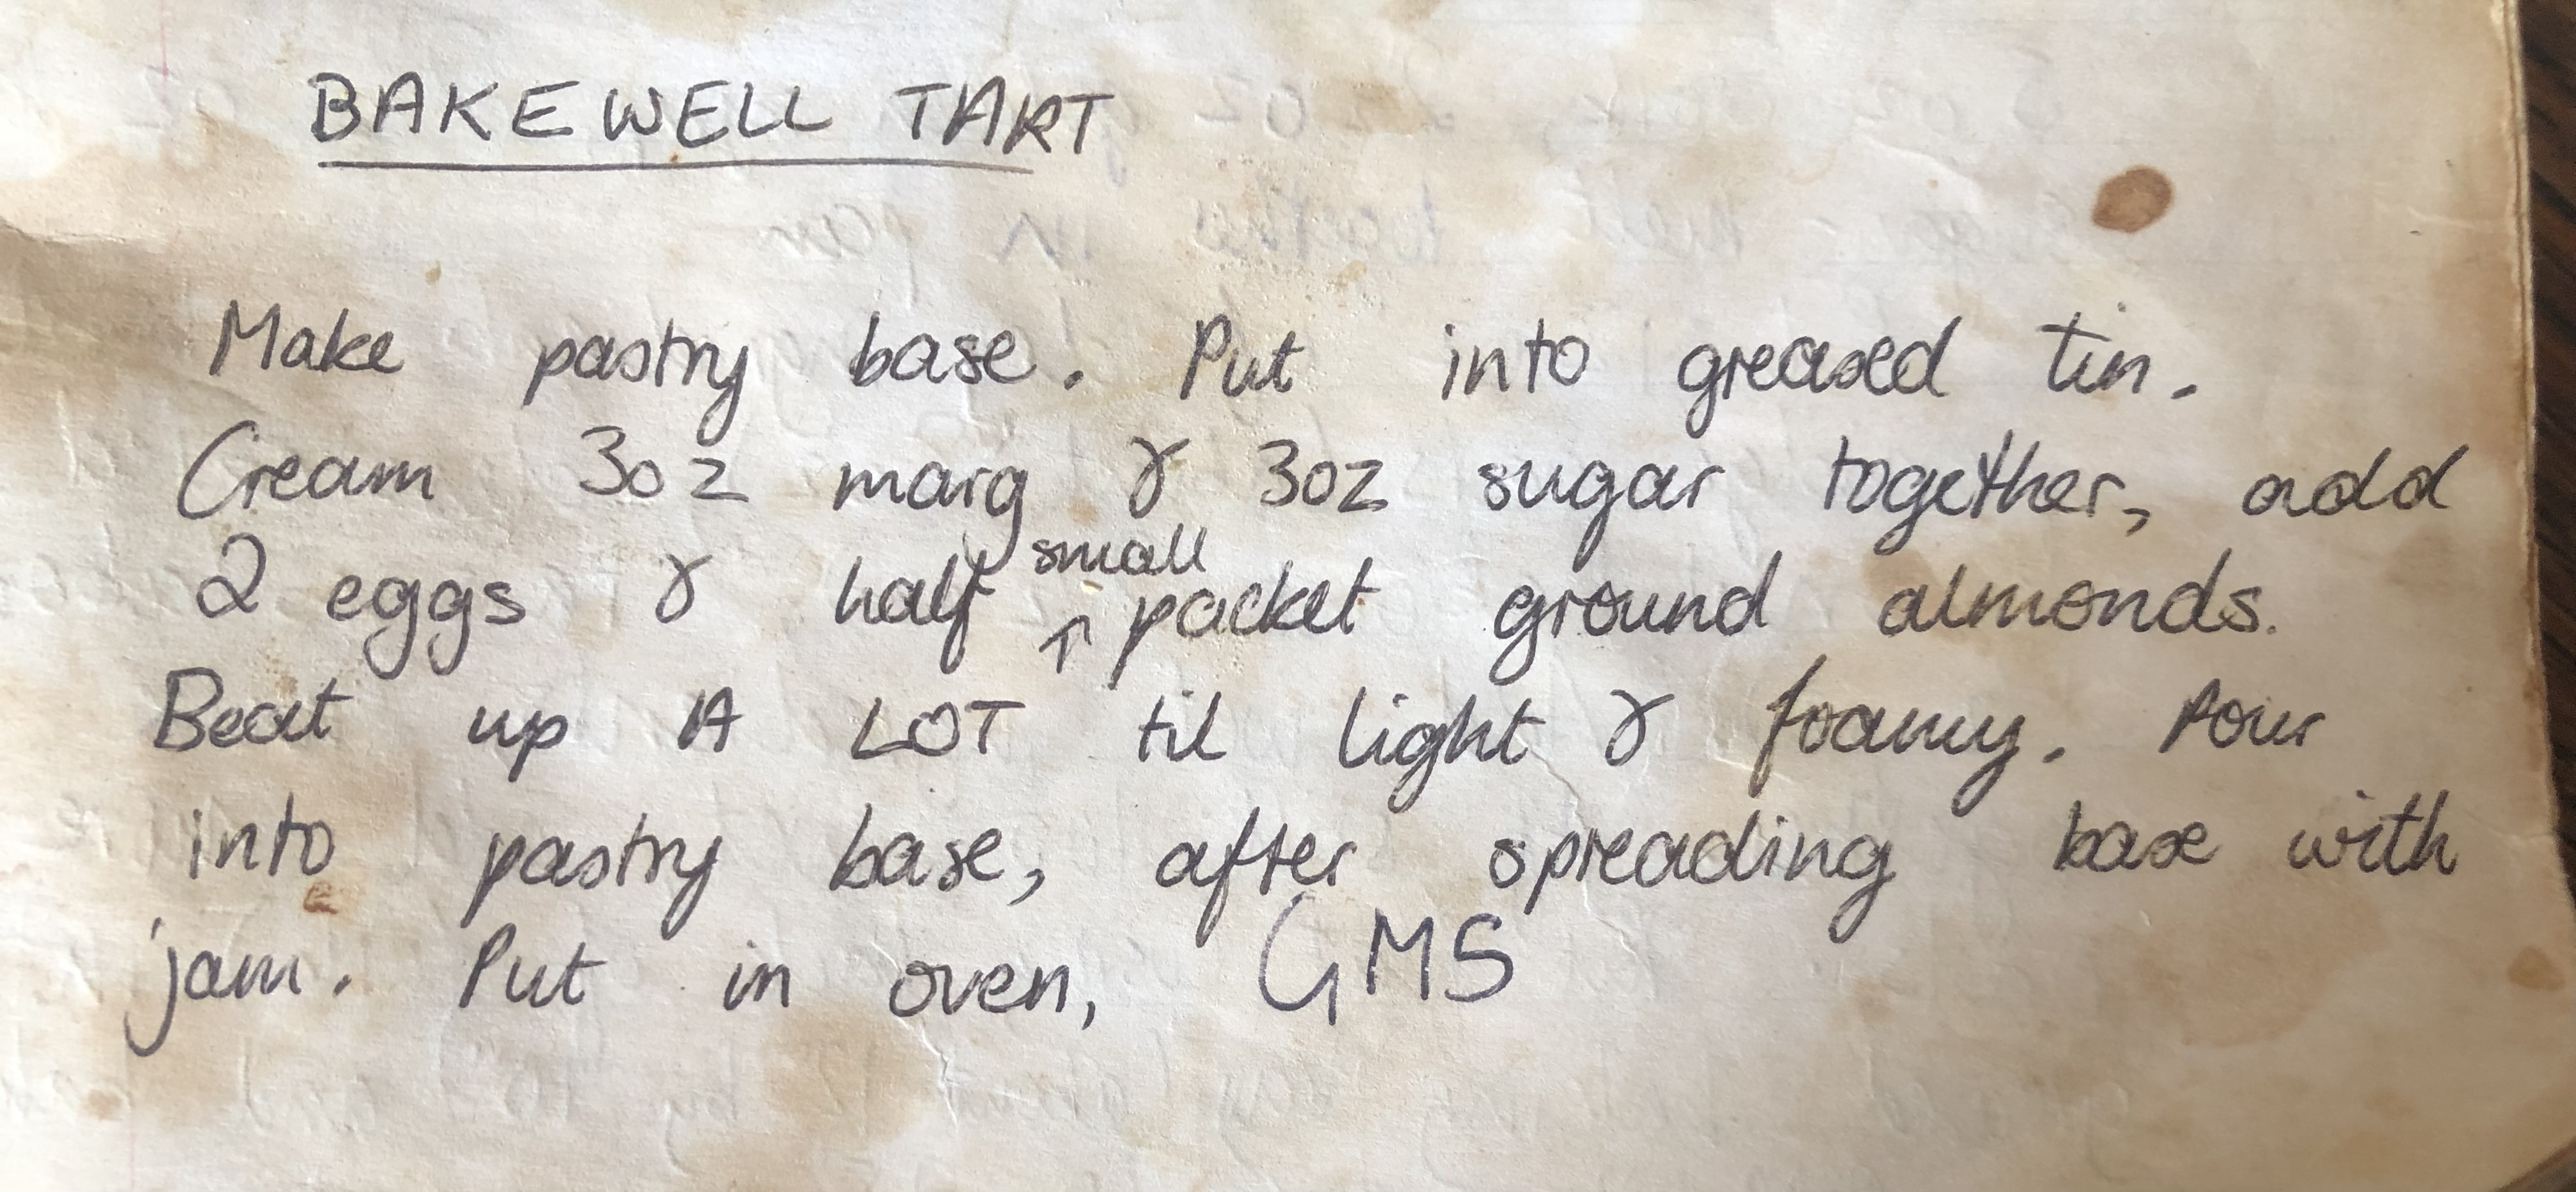 BAKEWELL TART
Make pastry base. Put into greased tin.
Cream 3oz marg & 3oz sugar together, add
2 eggs & half small packet ground almonds.
Beat up A LOT til light & foamy. Pour
into pastry base, after spreading base with
jam. Put in oven, GM5